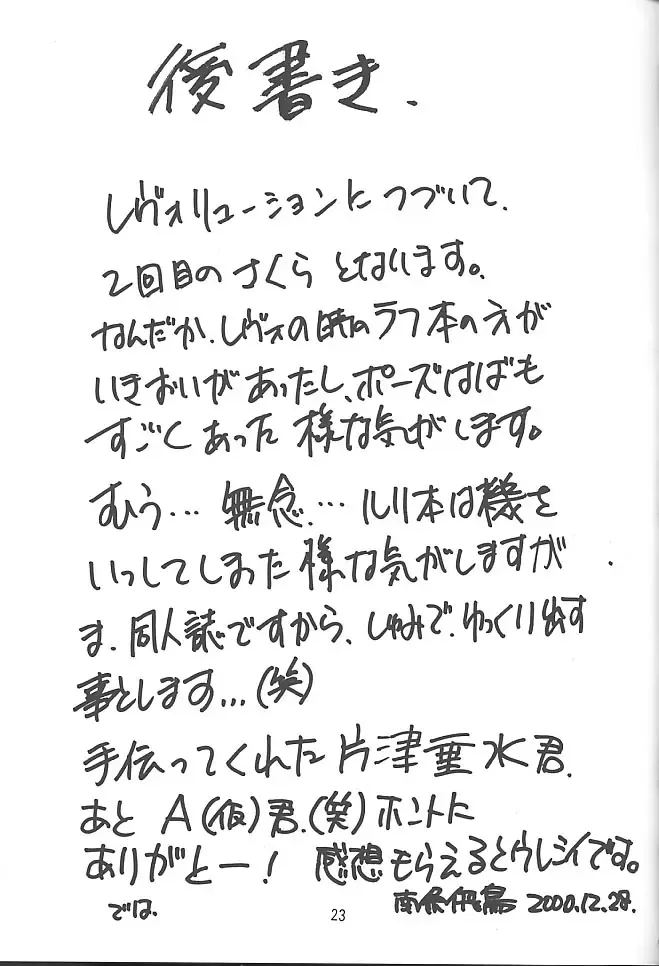 後書き.
レヴォリューションにつづいて.
2回目のさくらとなります。
なんだか.レヴォの時のラフ本の方が
いきおいがあったし、ポーズはばも
すごくあった様な気がします。
むう… 無念.… ルリ本は機を
いっしてしまった様な気がしますが
ま.同人誌ですから、しゅみで.ゆっくり出す
事とします…(笑)
手伝ってくれた片津垂水君.
あと A(仮)君.(笑)ホントに
ありがとー! 感想もらえるとウレシイです。
では.
2000.12.28.
23